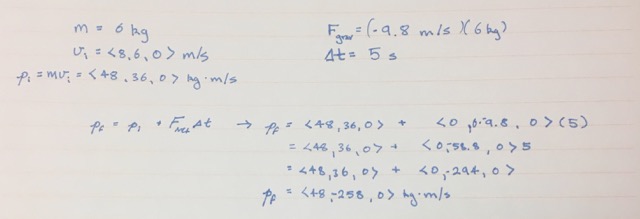 m = 6 kg
v⃗ᵢ = <8,6,0> m/s
p⃗ᵢ = mv⃗ᵢ = <48,36,0> kg·m/s
F_grav = (-9.8 m/s )(6 kg)
Δt = 5 s
p_f = p_i + F_Net Δt → p_f = <48,36,0> + <0,6·-9.8,0>(5)
= <48,36,0> + <0,-58.8,0>5
= <48,36,0> + <0,-294,0>
p_f = <48,-258,0> kg·m/s